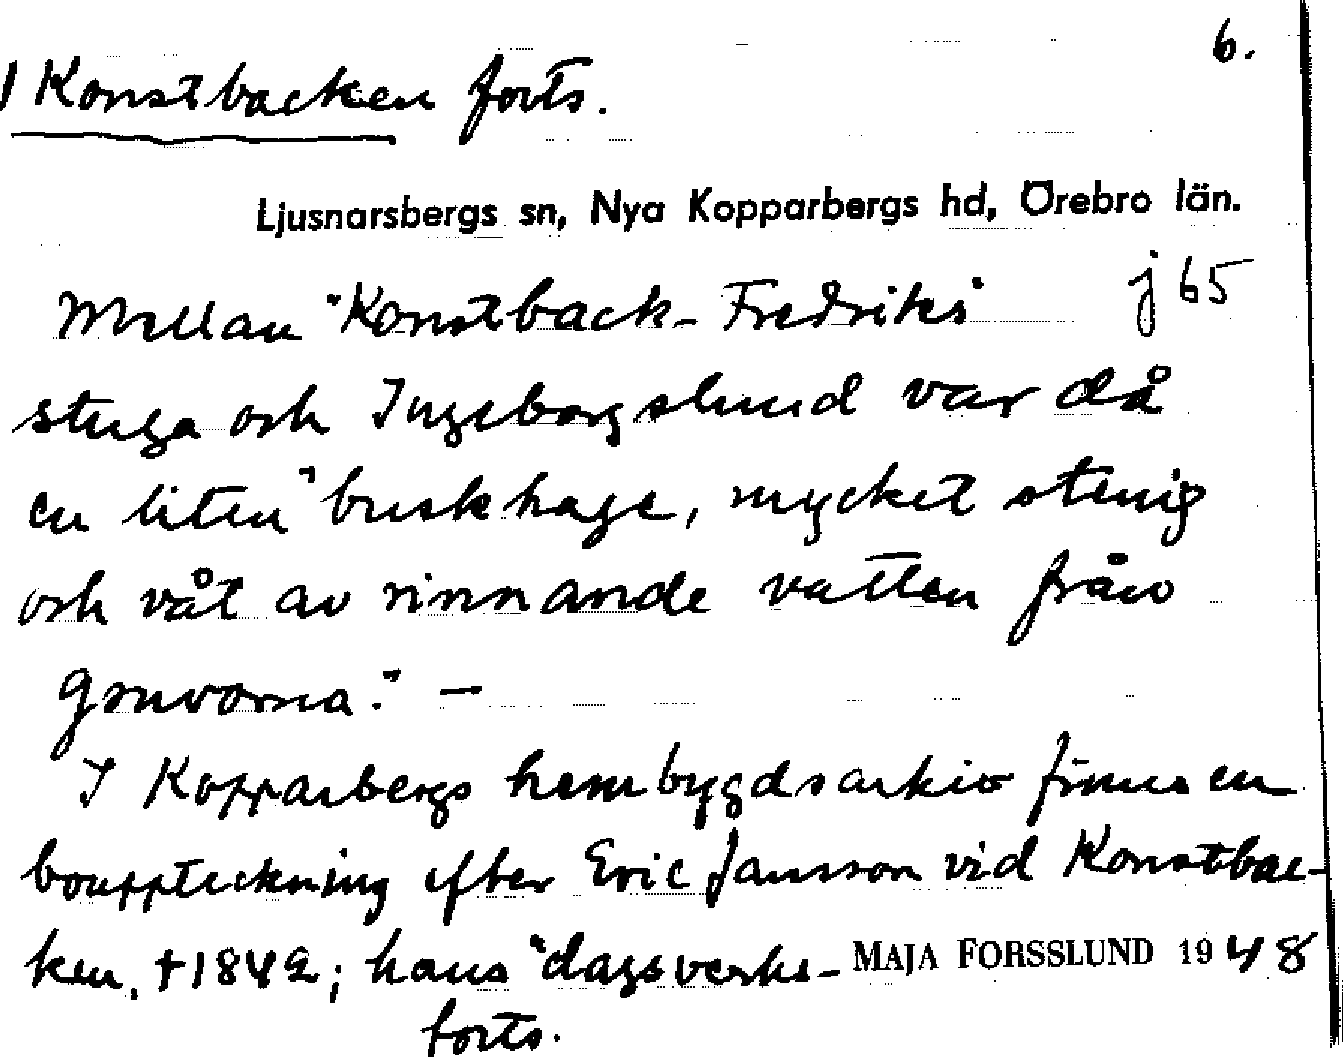 6.
Konstbacken forts.
Ljusnarsbergs sn, Nya Kopparbergs hd, Örebro län.
j 65
Mellan "Konstback-Fredriks"
stuga och Ingeborgslund var då
en liten "buskhage, mycket stenig
och våt av rinnande vatten från
gruvorna." —
I Kopparbergs hembygdsarkiv finns en
bouppteckning efter Eric Jansson vid Konstbac-
ken, †1842; hans "dagsverks-
MAJA FORSSLUND 1948
forts.